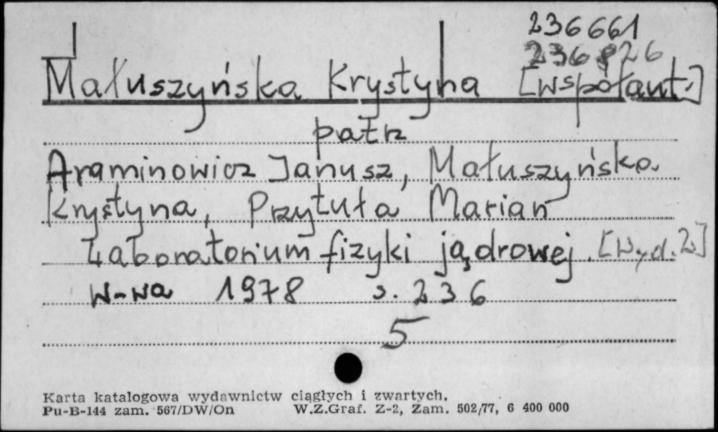 236661
236826
Małuszyńska Krystyna [współaut.]
patrz
Araminowicz Janusz, Małuszyńska
Krystyna, Przytuła Marian
Laboratorium fizyki jądrowej. [Wyd. 2]
W-wa 1978 s. 236
5
Karta katalogowa wydawnictw ciągłych i zwartych.
Pu-B-144 zam. 567/DW/On W.Z.Graf. Z-2, Zam. 502/77, 6 400 000